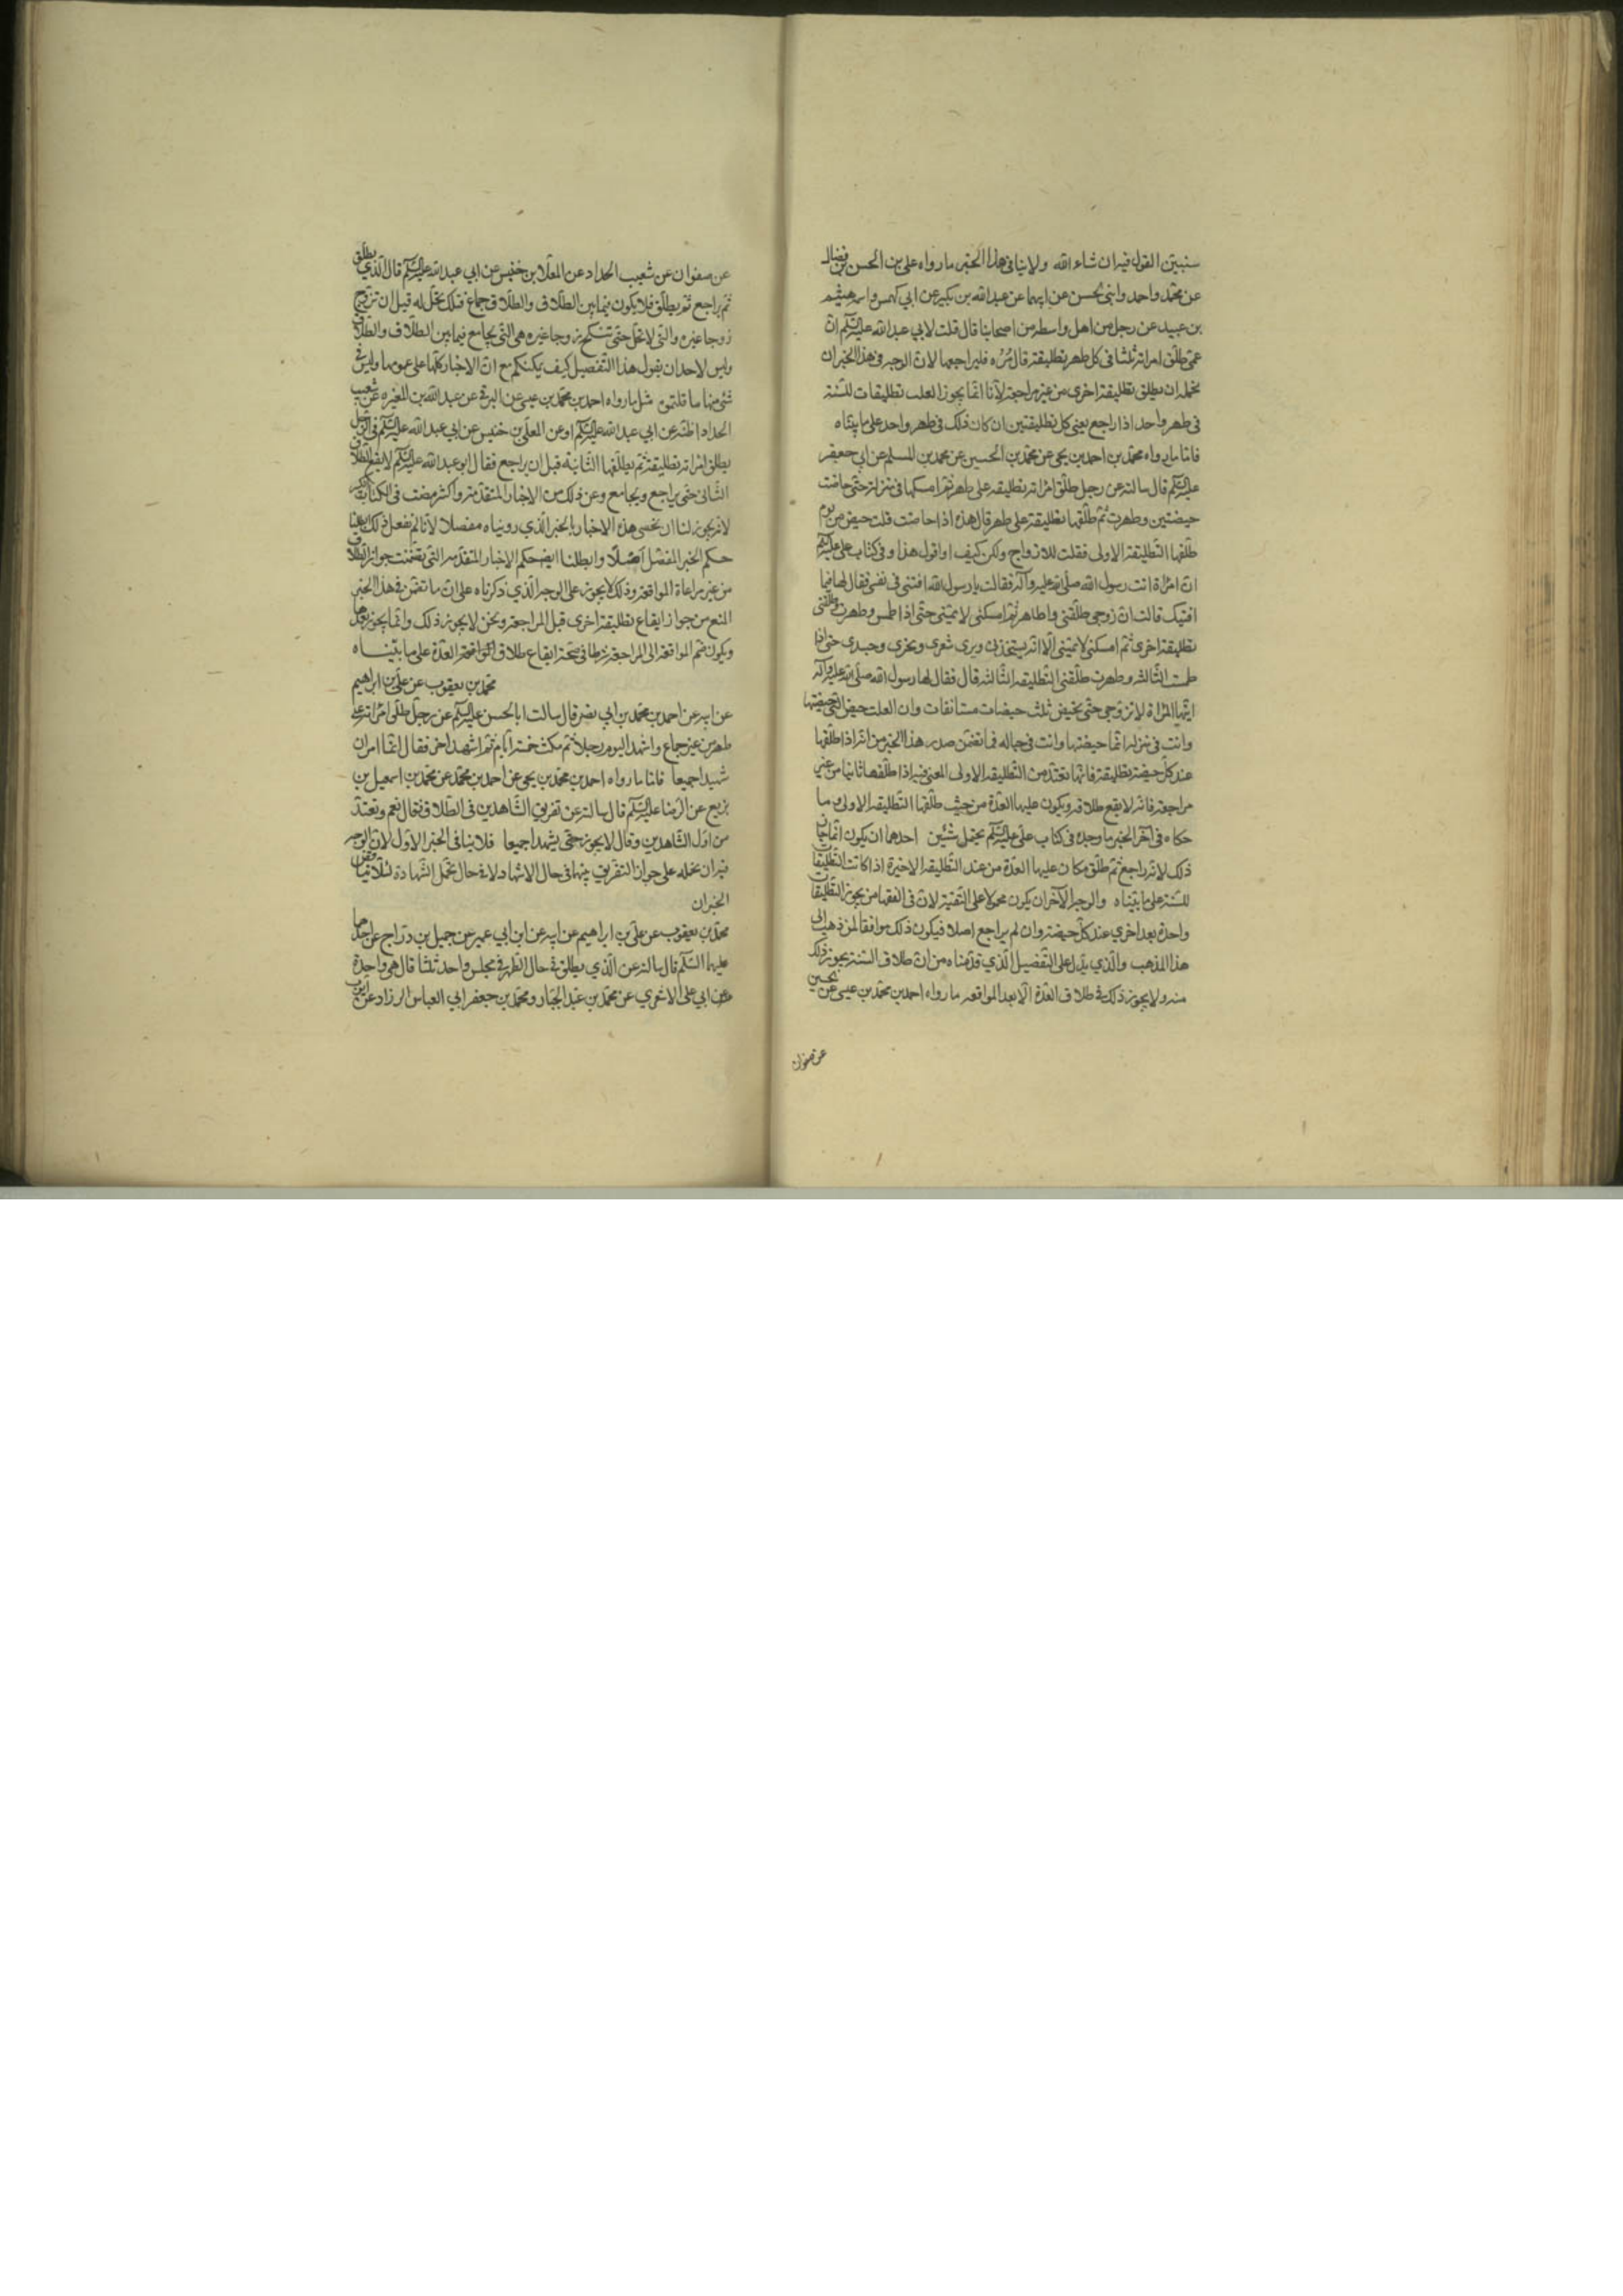 سنبين القول فيه ان شاء الله ولا ينافي هذا الخبر ما رواه علي بن الحسن بن فضال
عن محمد واحمد ابني الحسن عن ابيهما عن عبد الله بن بكير عن ابي كهمس واسمه هيثم
بن عبيد عن رجل من اهل واسط من اصحابنا قال قلت لابي عبد الله عليه السلم ان
عمي طلق امراته ثلثا في كل طهر تطليقة قال مره فليراجعها لان الوجه في هذا الخبر ان
نحمله ان يطلق تطليقة اخرى من غير مراجعة لانا انما يجوز العلـه تطليقات للسنة
في طهر واحد اذا راجع يعني كل تطليقتين ان كان ذلك في طهر واحد على ما بيناه
فاما ما رواه محمد بن احمد بن يحيى عن محمد بن الحسين عن محمد بن المسلم عن ابي جعفر
عليه السلم قال سالته عن رجل طلق امراته تطليقة على طهر ثم امسكها في منزله حتى حاضت
حيضتين وطهرت ثم طلقها تطليقة على طهر قال هذه اذا حاضت ثلث حيض من يوم
طلقها التطليقة الاولى فقلت للازواج ولكن كيف اواقول هذا وفي كتاب علي عليه السلم
ان امراة اتت رسول الله صلى الله عليه وآله فقالت يا رسول الله افتني في نفسي فقال لها فيما
افتيك قالت ان زوجي طلقني وانا طاهر ثم امسكني لا يمسني حتى اذا طمست وطهرت طلقني
تطليقة اخرى ثم امسكني لا يمسني الا انه يستخدمني ويرى شعري ونحري وجسدي حتى اذا
طمست الثالثة وطهرت طلقني التطليقة الثالثة قال فقال لها رسول الله صلى الله عليه وآله
ايتها المراة لا تزوجي حتى تحيضي ثلث حيضات مستانفات وان الثلث حيض التي حيضتها
وانت في منزله انما حيضتها وانت في حباله فما تضمن صدر هذا الخبر من انه اذا طلقها
عند كل حيضة تطليقة فانها تعتد من التطليقة الاولى المعنى فيه اذا طلقها ثانيا من غير
مراجعة فانه لا يقع طلاقه ويكون عليها العدة من حيث طلقها التطليقة الاولى وما
حكاه في آخر الخبر ما وجده في كتاب علي عليه السلم يحتمل شئين احدهما ان يكون انما جاز
ذلك لانه راجع ثم طلق فكان عليها العدة من عند التطليقة الاخيرة اذا كانت التطليقات
للسنة على ما بيناه والوجه الآخر ان يكون محمولا على التقية لان في الفقها من يجوز التطليقات
واحدة بعد اخرى عند كل حيضة وان لم يراجع اصلا فيكون ذلك موافقا لمن ذهب الى
هذا المذهب والذي يدل على التفصيل الذي قدمناه من ان طلاق السنة يجوز ذلك
منه ولا يجوز ذلك في طلاق العدة الا بعد المواقعة ما رواه احمد بن محمد بن عيسى عن الحسين
عن صفوان
عن صفوان عن شعيب الحداد عن المعلا بن خنيس عن ابي عبد الله عليه السلم قال الذي يطلق
ثم يراجع ثم يطلق فلا يكون فيما بين الطلاق والطلاق جماع فتلك تحل له قبل ان تزوج
زوجا غيره والتي لا تحل حتى تنكح زوجا غيره هي التي يجامع فيما بين الطلاق والطلاق
وليس لاحد ان يقول هذا التفصيل كيف يمكنكم مع ان الاخبار كلها على عمومها وليس في
شئ منها ما قلتموه مثل ما رواه احمد بن محمد بن عيسى عن البرقي عن عبد الله بن المغيرة عن شعيب
الحداد اظنه عن ابي عبد الله عليه السلم او عن المعلى بن خنيس عن ابي عبد الله عليه السلم في الرجل
يطلق امراته تطليقة ثم يطلقها الثانية قبل ان يراجع فقال ابو عبد الله عليه السلم لا يقع الطلاق
الثاني حتى يراجع ويجامع وعن ذلك من الاخبار المتقدمة واكثرها مضت في الكتاب الكبير
لانه يجوز لنا ان نخص هذه الاخبار بالخبر الذي رويناه مفصلا لانا لم نفعل ذلك ابطلنا
حكم الخبر المفصل اصلا وابطلنا ايضا حكم الاخبار المتقدمة التي تضمنت جواز الطلاق
من غير مراعاة المواقعة وذلك لا يجوز على الوجه الذي ذكرناه على ان ما تضمن هذا الخبر
المنع من جواز ايقاع تطليقة اخرى قبل المراجعة ونحن لا يجوز ذلك وانما يجوز بعدها
ويكون ضم المواقعة الى المراجعة شرطا في صحة ايقاع طلاق المواقعة العدة على ما بيناه
محمد بن يعقوب عن علي بن ابراهيم
عن ابيه عن احمد بن محمد بن ابي نصر قال سالت ابا الحسن عليه السلم عن رجل طلق امراته على
طهر من غير جماع واشهد اليوم رجلا ثم مكث خمسة ايام ثم اشهد آخر فقال انما امر ان
يشهدا جميعا فاما ما رواه احمد بن محمد بن يحيى عن احمد بن محمد عن محمد بن اسمعيل بن
بزيع عن الرضا عليه السلم قال سالته عن تفريق الشاهدين في الطلاق فقال نعم وتعتد
من اول الشاهدين وقال لا يجوز حتى يشهدا جميعا فلا ينافي الخبر الاول لان الوجه
فيه ان نحمله على جواز التفريق بينهما في حال الاشهاد لا في حال تحمل الشهادة لئلا يتناقض
الخبران
محمد بن يعقوب عن علي بن ابراهيم عن ابيه عن ابن ابي عمير عن جميل بن دراج عن احدهما
عليهما السلم قال سالته عن الذي يطلق في حال الطهر في مجلس واحد ثلثا قال هي واحدة
عن ابي علي الاشعري عن محمد بن عبد الجبار ومحمد بن جعفر ابي العباس الرزاز عن ايوب